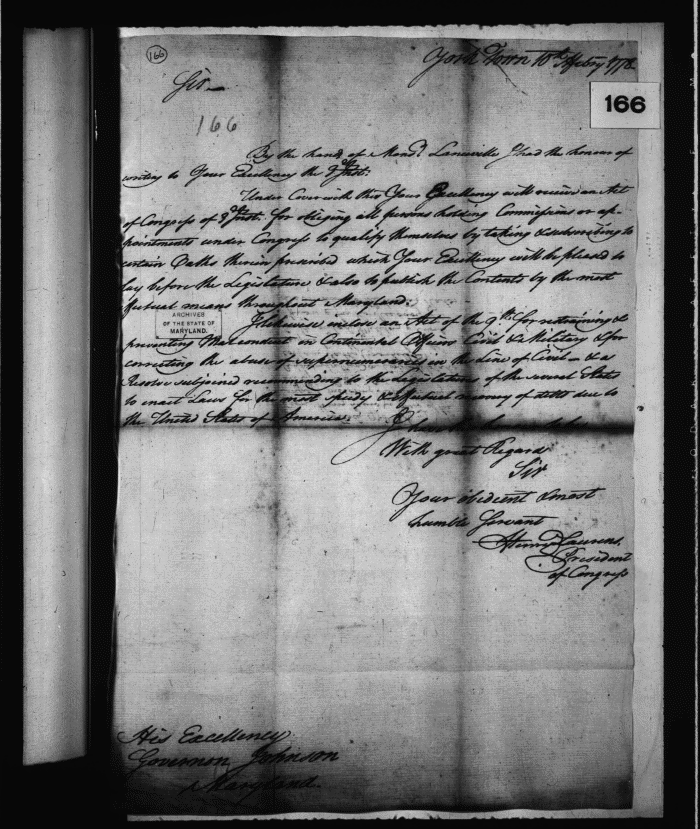 166
York Town 10th Feby 1778
Sir
166
166
By the hand of Monsr. Lanuville I had the honour of
writing to Your Excellency the 8th Inst.
Under Cover with this Your Excellency will receive an Act
of Congress of Inst. for obliging all persons holding Commissions or ap-
pointments under Congress to qualify themselves by taking & subscribing to
certain Oaths therein prescribed which Your Excellency will be pleased to
lay before the Legislature & also to publish the Contents by the most
fectual means throughout Maryland.
ARCHIVES
OF THE STATE OF
MARYLAND.
I likewise inclose an Act of the 9th for restraining &
preventing Misconduct in Continental Officers Civil & Military & for
correcting the abuse of supernumeraries in the Line of Civil - & a
Resolve subjoined recommending to the Legislatures of the several States
to enact Laws for the most speedy & effectual recovery of debts due to
the United States of America.
I have the honour to be
With great Regard
Sir
Your obedient & most
humble Servant
Henry Laurens,
President
of Congress
His Excellency
Governor Johnson
Maryland.